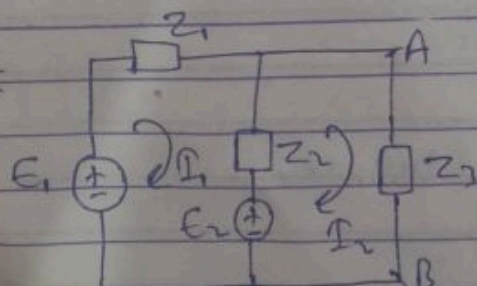 Z1
A
E1 + - I1 Z2 Z3
E2 + - I2
B